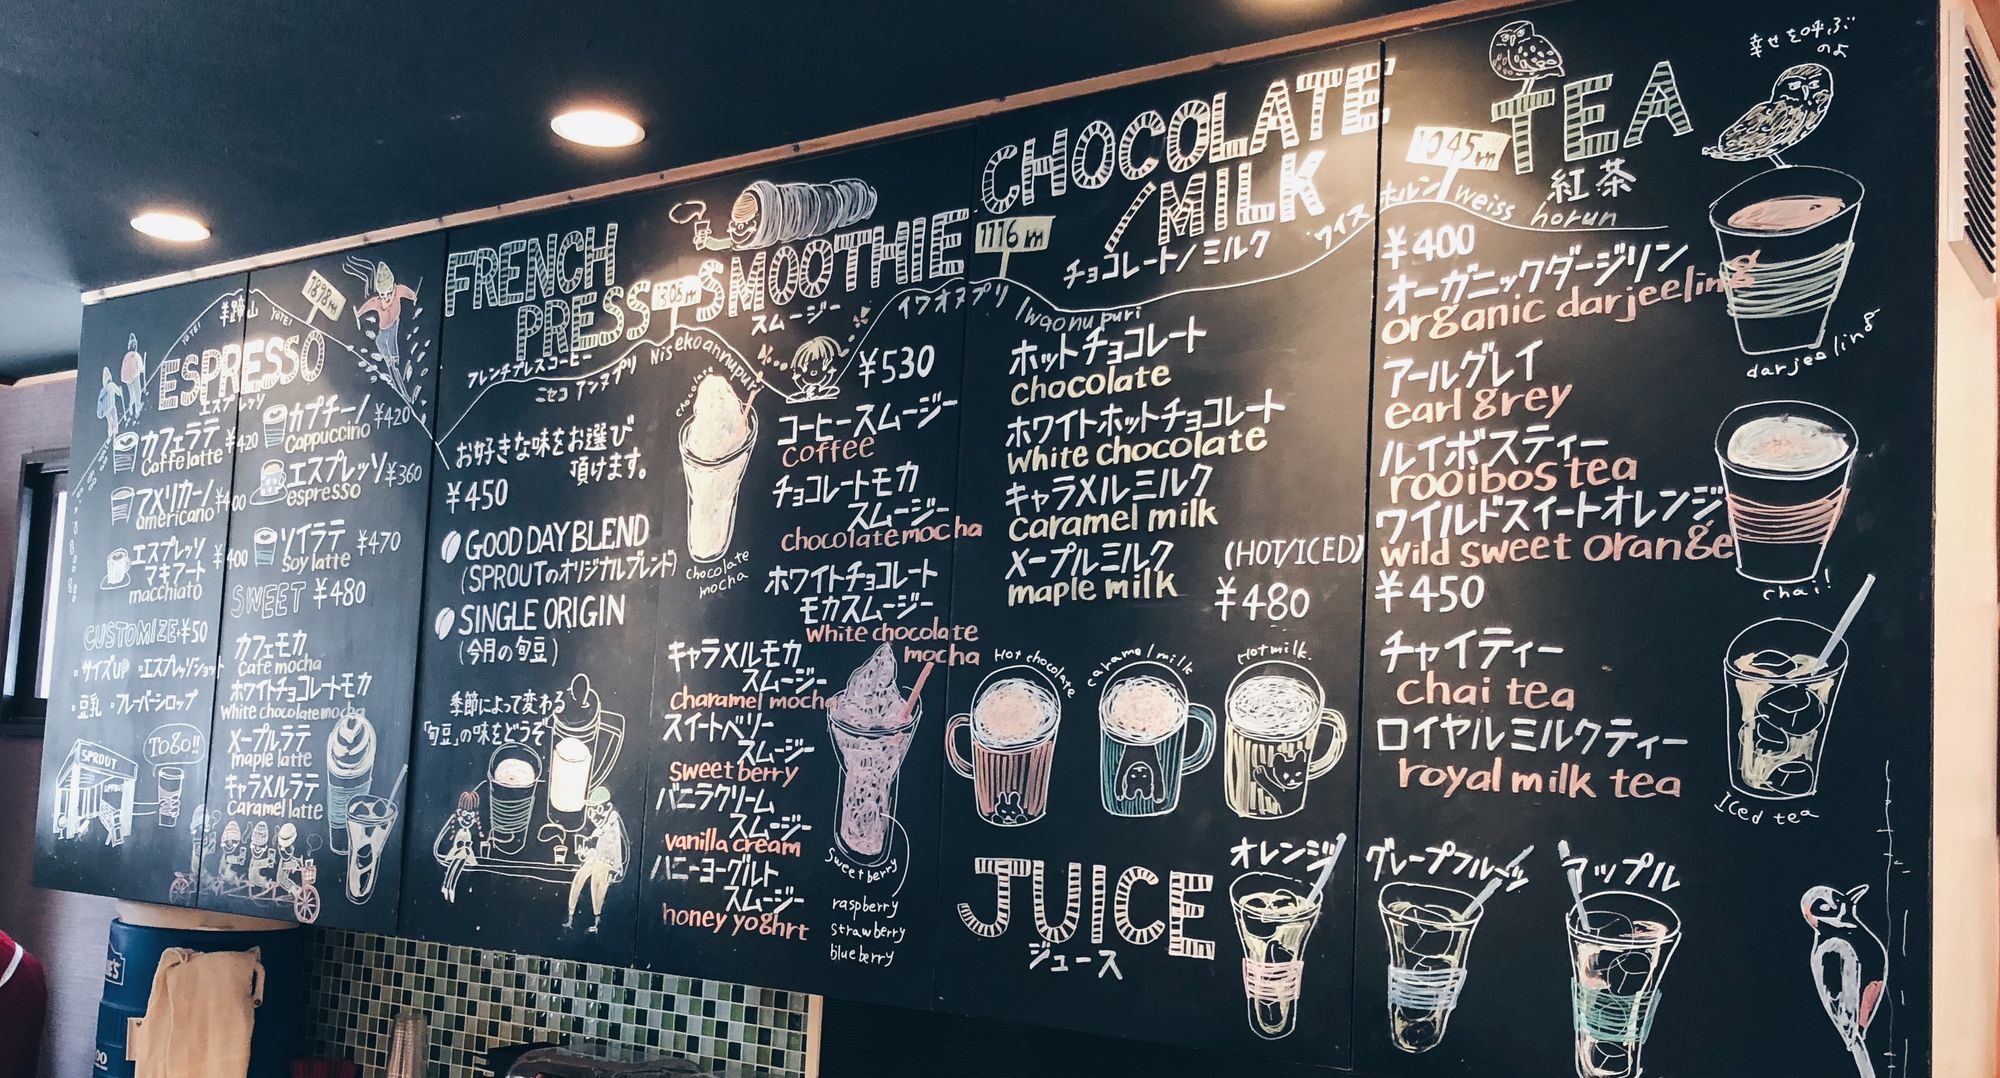 羊蹄山
YOTEI
YOTEI
1898m
ESPRESSO
エスプレッソ
カフェラテ ¥420
Caffe latte
アメリカーノ ¥400
americano
エスプレッソ
マキアート ¥400
macchiato
CUSTOMIZE+¥50
・サイズUP ・エスプレッソショット
・豆乳 ・フレーバーシロップ
SPROUT
TOGO!!
カプチーノ ¥420
Cappuccino
エスプレッソ ¥360
espresso
ソイラテ ¥470
Soy latte
SWEET ¥480
カフェモカ
Cafe mocha
ホワイトチョコレートモカ
White chocolate mocha
メープルラテ
maple latte
キャラメルラテ
Caramel latte
FRENCH
PRESS
フレンチプレスコーヒー
ニセコアンヌプリ
Nisekoannupuri
お好きな味をお選び
頂けます。
¥450
GOOD DAY BLEND
(SPROUTのオリジナルブレンド)
SINGLE ORIGIN
(今月の旬豆)
季節によって変わる
「旬豆」の味をどうぞ
SMOOTHIE
スムージー
¥530
chocolate
chocolate
mocha
コーヒースムージー
coffee
チョコレートモカ
スムージー
chocolate mocha
ホワイトチョコレート
モカスムージー
White chocolate
mocha
キャラメルモカ
スムージー
charamel mocha
スイートベリー
スムージー
sweet berry
バニラクリーム
スムージー
vanilla cream
ハニーヨーグルト
スムージー
honey yoghrt
sweet berry
raspberry
strawberry
blueberry
CHOCOLATE
/MILK
チョコレート/ミルク
1116m
イワオヌプリ
Iwaonupuri
ホットチョコレート
chocolate
ホワイトホットチョコレート
White chocolate
キャラメルミルク
Caramel milk
メープルミルク
maple milk
(HOT/ICED)
¥480
Hot chocolate
caramel milk
Hot milk.
JUICE
ジュース
オレンジ
グレープフルーツ
アップル
TEA
紅茶
1045m
ワイスホルン weiss horun
幸せを呼ぶ
のよ
¥400
オーガニックダージリン
organic darjeeling
アールグレイ
earl grey
ルイボスティー
rooibos tea
ワイルドスイートオレンジ
wild sweet orange
¥450
チャイティー
chai tea
ロイヤルミルクティー
royal milk tea
darjeeling
chai!
Iced tea